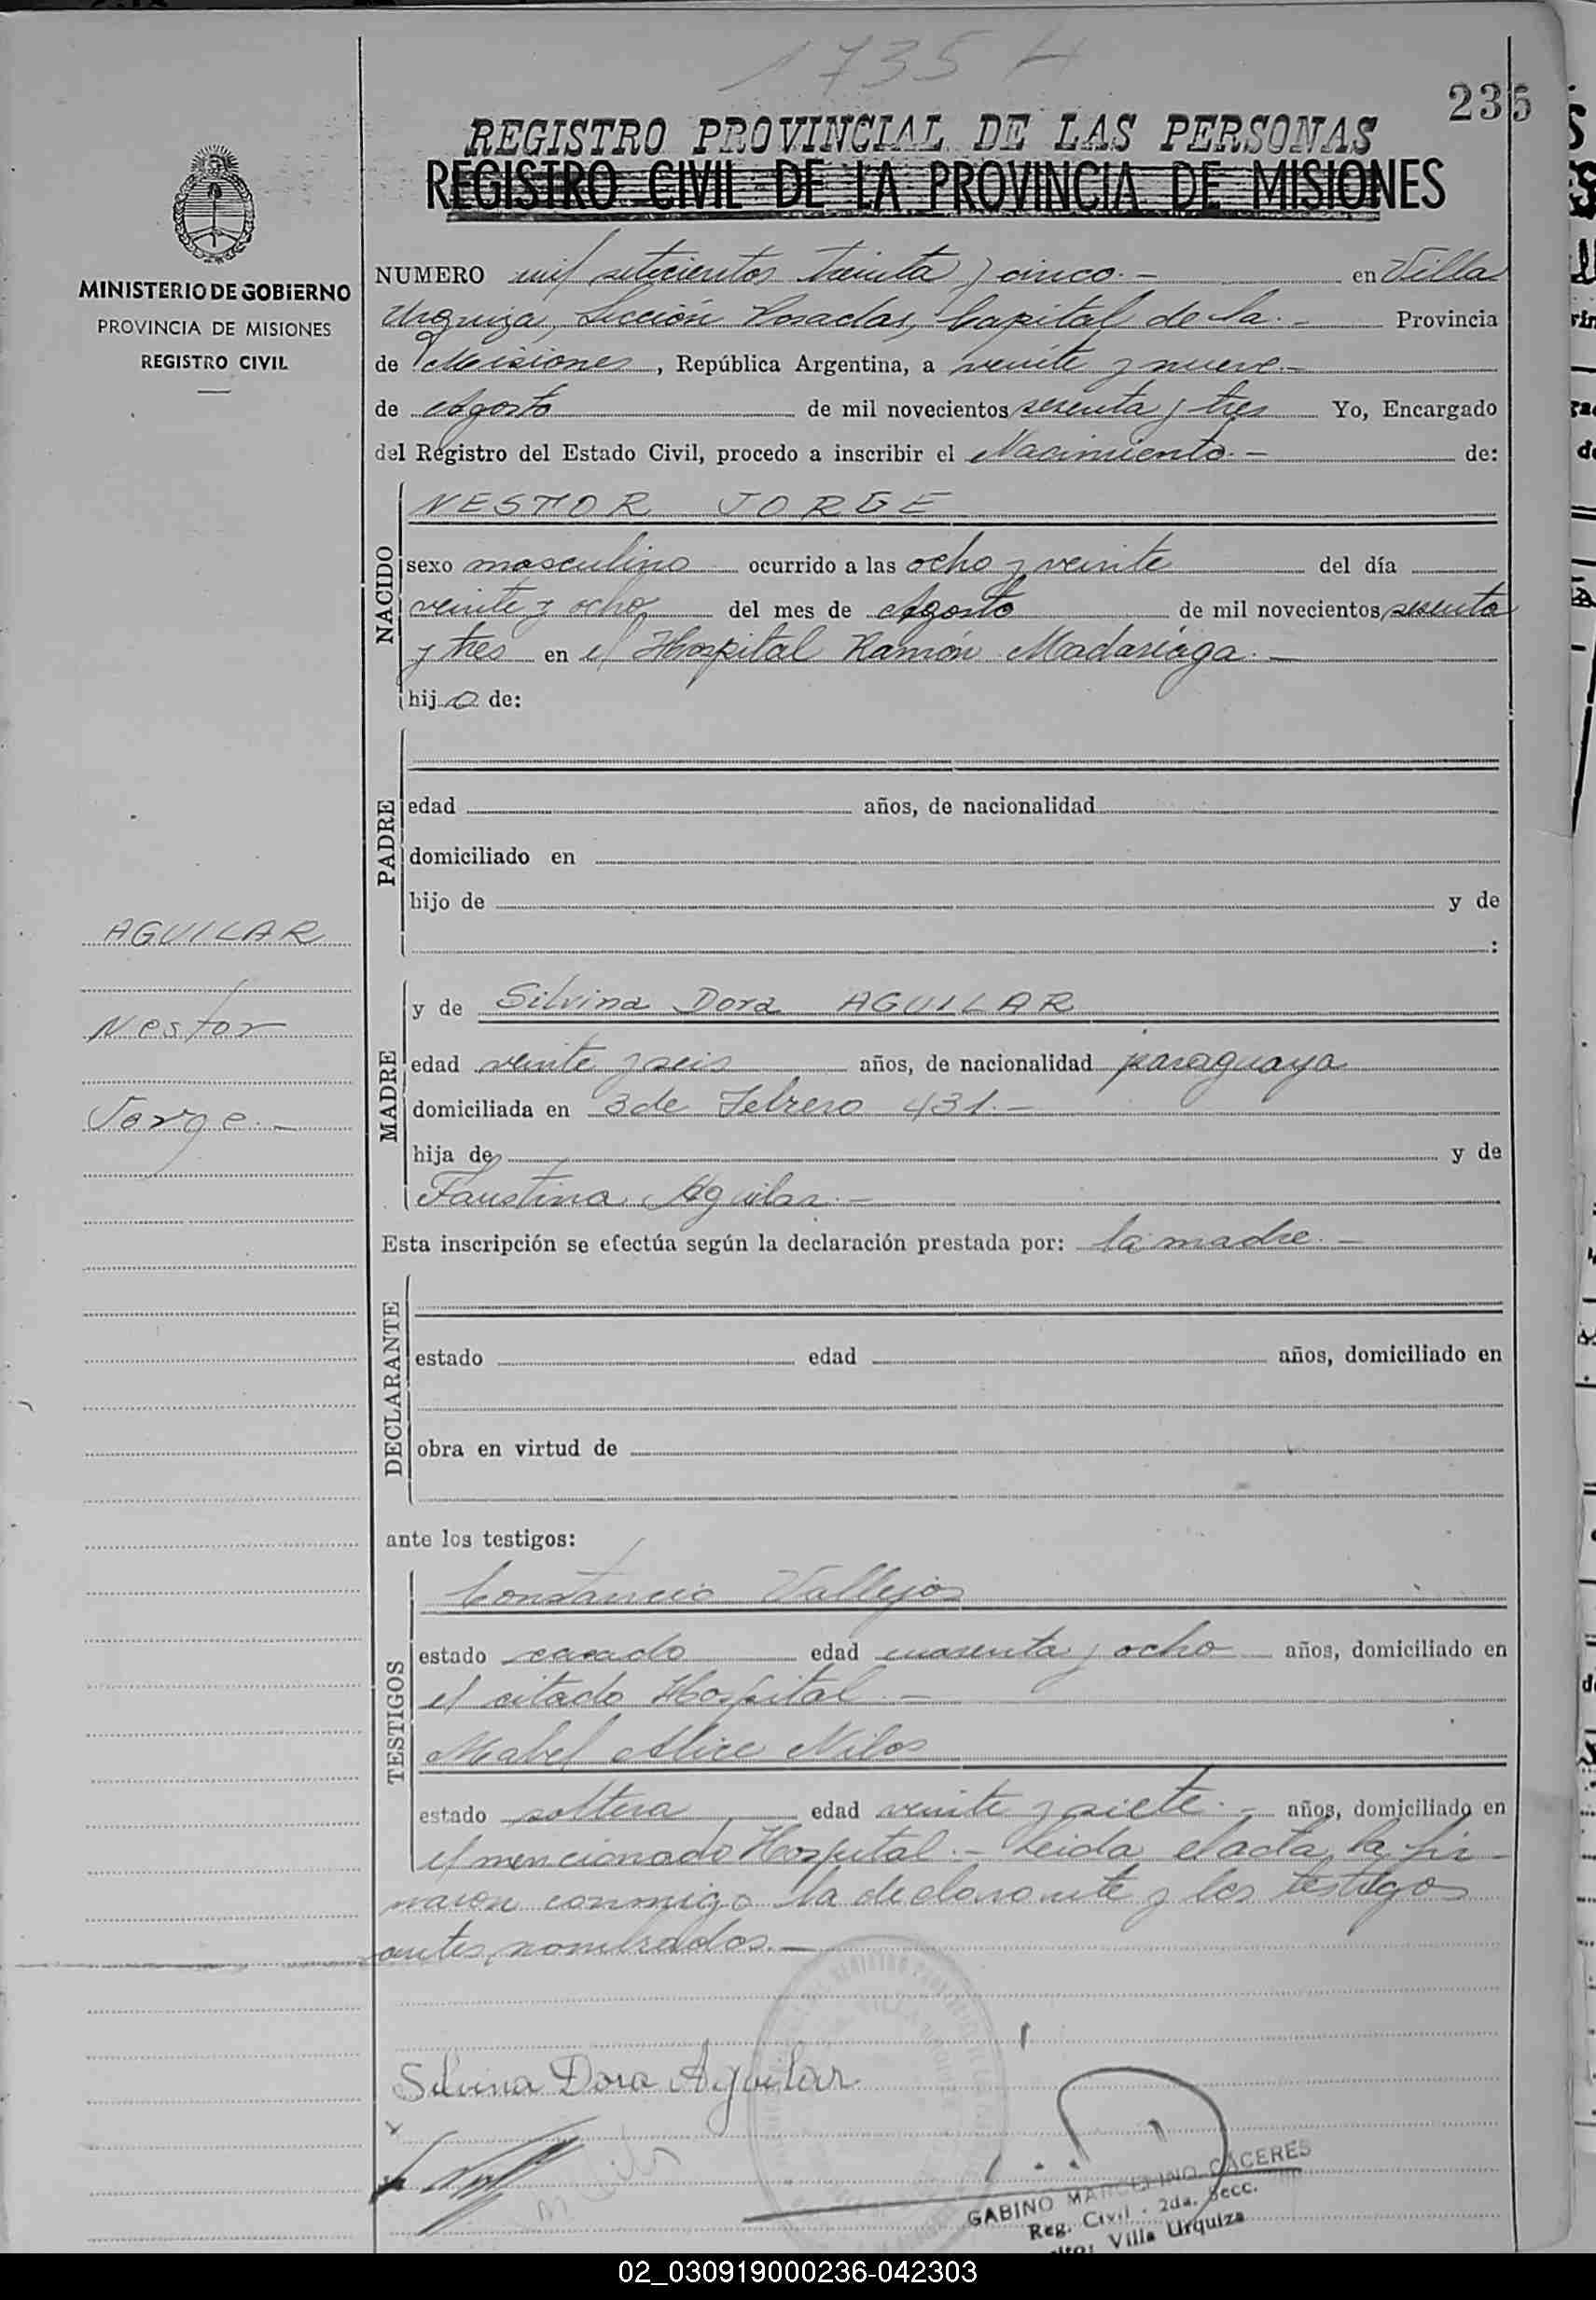 1735 H
235
REGISTRO PROVINCIAL DE LAS PERSONAS
REGISTRO CIVIL DE LA PROVINCIA DE MISIONES
MINISTERIO DE GOBIERNO
PROVINCIA DE MISIONES
REGISTRO CIVIL
NUMERO mil setecientos treinta y cinco.- en Villa
Urquiza, Sección Posadas, Capital de la.- Provincia
de Misiones, República Argentina, a veinte y nueve.-
de Agosto de mil novecientos sesenta y tres Yo, Encargado
del Registro del Estado Civil, procedo a inscribir el Nacimiento.- de:
NACIDO
NESTOR JORGE
sexo masculino ocurrido a las ocho y veinte del día
veinte y ocho del mes de Agosto de mil novecientos sesenta
y tres en el Hospital Ramón Madariaga.-
hijo de:
PADRE
edad años, de nacionalidad
domiciliado en
hijo de y de
:
AGUILAR
Nestor
Jorge.-
MADRE
y de Silvina Dora AGUILAR
edad veinte y seis años, de nacionalidad paraguaya
domiciliada en 3 de Febrero 431.-
hija de y de
Faustina Aguilar.-
Esta inscripción se efectúa según la declaración prestada por: la madre.-
DECLARANTE
estado edad años, domiciliado en
obra en virtud de
ante los testigos:
TESTIGOS
Constancio Vallejos
estado casado edad cuarenta y ocho años, domiciliado en
el citado Hospital.-
Mabel Alice Nilos
estado soltera edad veinte y siete.- años, domiciliado en
el mencionado Hospital.- Leida el acta, la fir-
maron conmigo la declarante y los testigos
antes nombrados.-
Silvina Dora Aguilar
GABINO MARCELINO CACERES
Reg. Civil - 2da. Secc.
Villa Urquiza
02_030919000236-042303